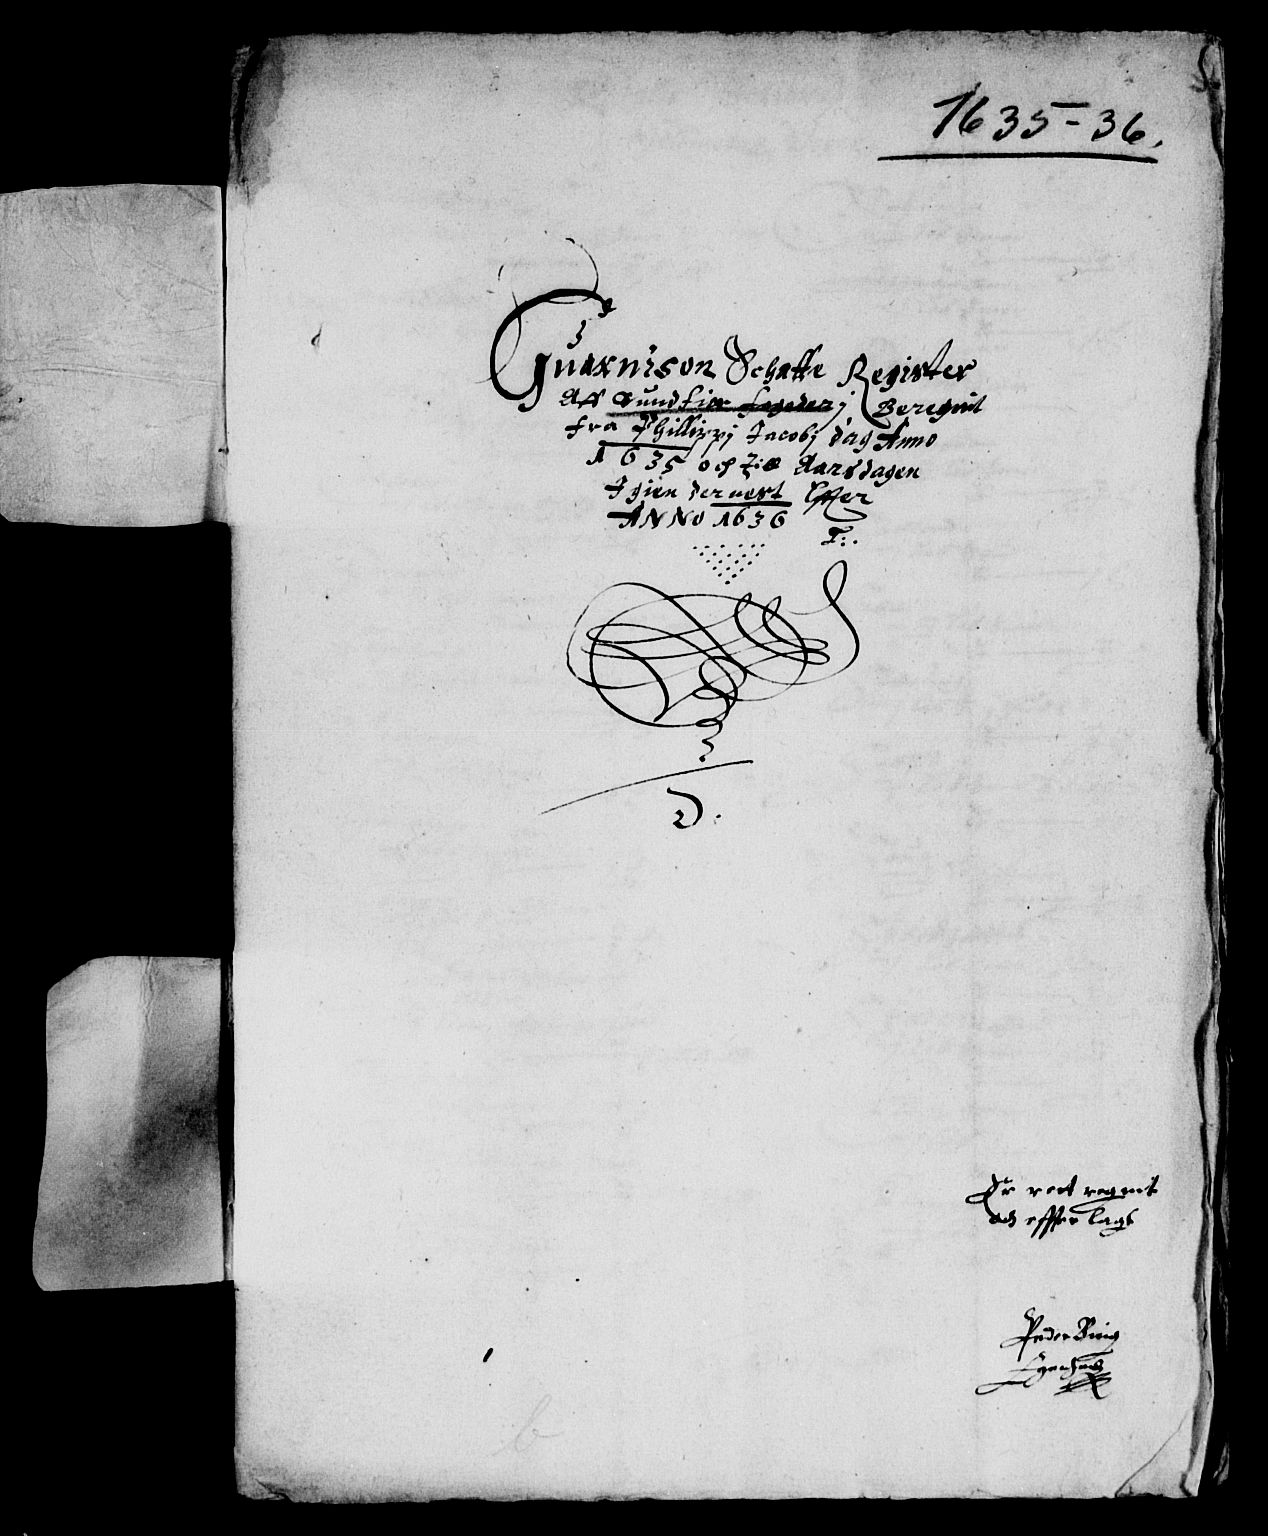 1635-36.
Guarnison Schatte Register
Aff Sundtiør fogderj Beregnit
fra Phillippj Jacobj dag Anno
1635 och til Aarsdagen
Igien dernest Effter
ANNO 1636
D.
Er rett regnit
och effter lagt
Peder
Egenhand
b